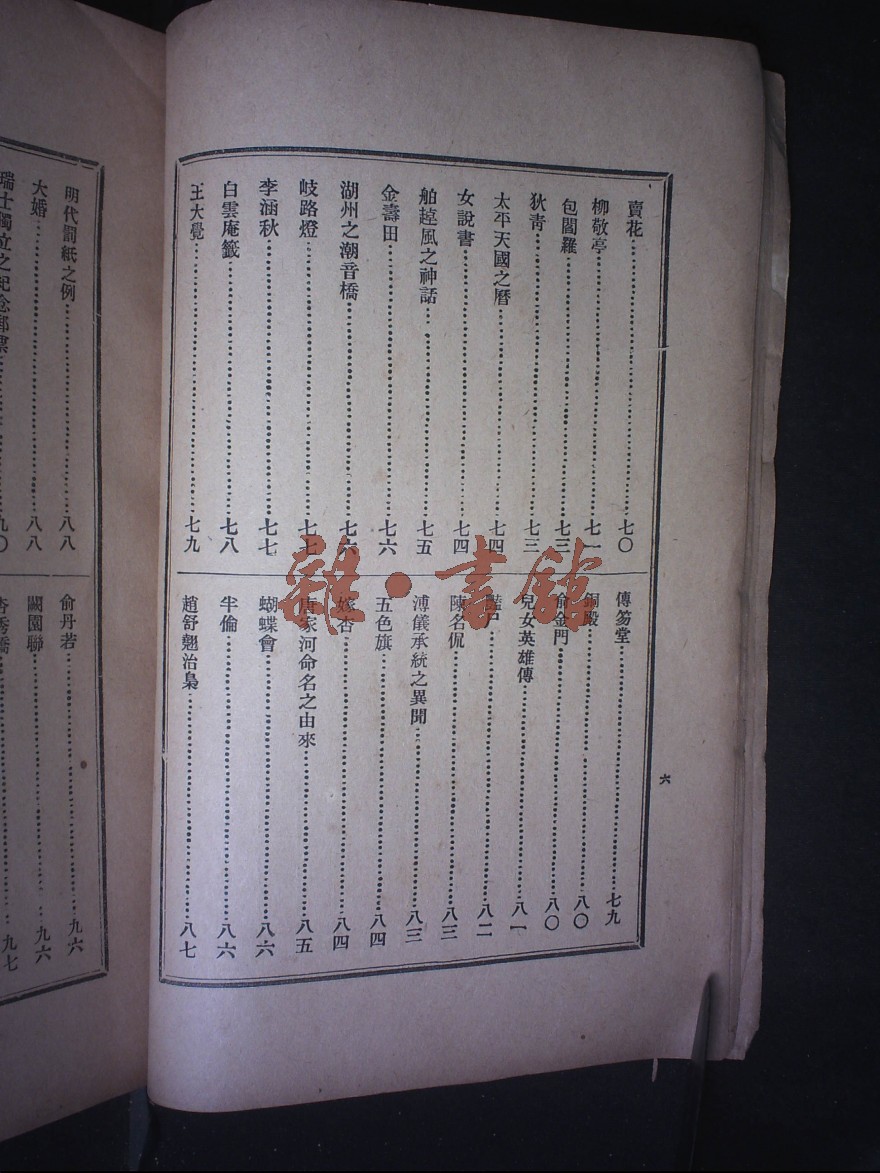 賣花 七〇
柳敬亭 七一
包閻羅 七三
狄青 七三
太平天國之曆 七四
女說書 七四
舶趠風之神話 七五
金壽田 七六
湖州之潮音橋 七六
岐路燈 七七
李涵秋 七七
白雲庵籤 七八
王大覺 七九
傳笏堂 七九
銅殿 八〇
俞金門 八〇
兒女英雄傳 八一
戶 八二
陳名侃 八三
溥儀承統之異聞 八三
五色旗 八四
嫁杏 八四
唐家河命名之由來 八五
蝴蝶會 八六
半倫 八六
趙舒翹治梟 八七
六
明代罰紙之例 八八
大婚 八八
瑞士獨立之紀念郵票 九〇
俞丹若 九六
闕園聯 九六
杏秀橋 九七
雜·書館